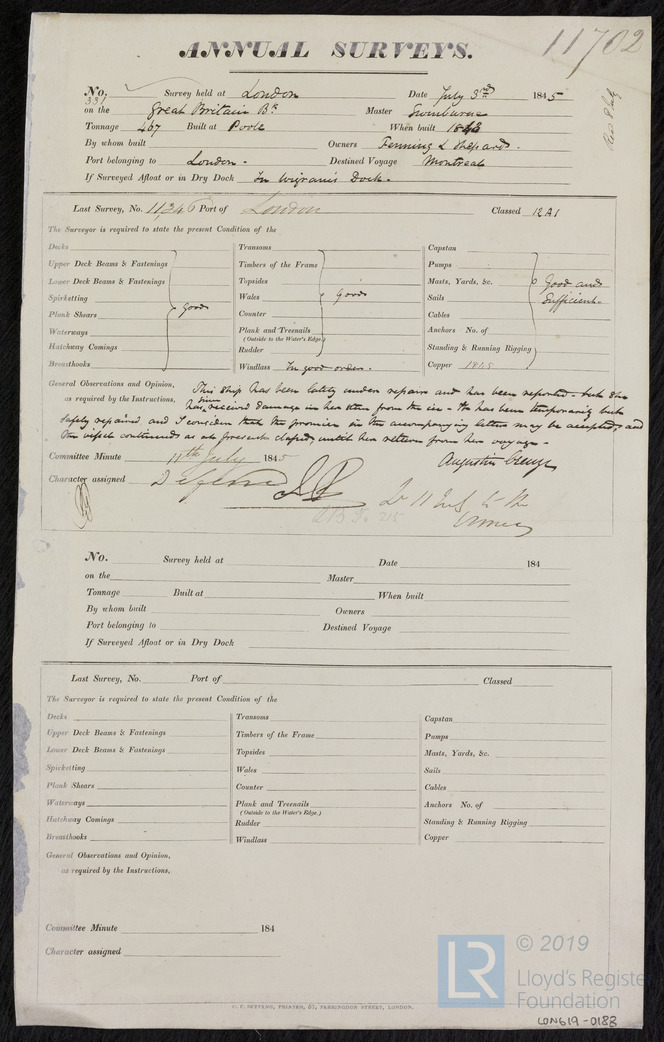 11702
ANNUAL SURVEYS.
No. 331 Survey held at London Date July 3rd 1845
on the Great Britain Bk Master Swinburne
Tonnage 467 Built at Poole When built 1843
By whom built Owners Fenning & Shepard.
Port belonging to London - Destined Voyage Montreal
If Surveyed Afloat or in Dry Dock In Wigrams Dock.
Last Survey, No. 11,346 Port of London Classed 12 A1
The Surveyor is required to state the present Condition of the
Decks
Upper Deck Beams & Fastenings
Lower Deck Beams & Fastenings
Spirketting
Plank Shears good
Waterways
Hatchway Comings
Breasthooks
Transoms
Timbers of the Frame
Topsides
Wales Good
Counter
Plank and Treenails
(Outside to the Water's Edge.)
Rudder
Windlass In good order.
Capstan
Pumps
Masts, Yards, &c. Good and
Sails Sufficient.
Cables
Anchors No. of
Standing & Running Rigging
Copper 1845
General Observations and Opinion, This ship has been lately under repairs and has been reported - but she
as required by the Instructions, has since received damage in her stem from the ice - has been temporarily but
safely repaired, and I consider that the promise in the accompanying letter may be accepted, and
the vessel continued as at present classed, until her return from her voyage -
Committee Minute 11th July 1845
Character assigned Deferred
No. Survey held at Date 184
on the Master
Tonnage Built at When built
By whom built Owners
Port belonging to Destined Voyage
If Surveyed Afloat or in Dry Dock
Last Survey, No. Port of Classed
The Surveyor is required to state the present Condition of the
Decks
Upper Deck Beams & Fastenings
Lower Deck Beams & Fastenings
Spirketting
Plank Shears
Waterways
Hatchway Comings
Breasthooks
Transoms
Timbers of the Frame
Topsides
Wales
Counter
Plank and Treenails
(Outside to the Water's Edge.)
Rudder
Windlass
Capstan
Pumps
Masts, Yards, &c.
Sails
Cables
Anchors No. of
Standing & Running Rigging
Copper
General Observations and Opinion,
as required by the Instructions,
Committee Minute 184
Character assigned
PRINTER, 67, FARRINGDON STREET, LONDON.
LR © 2019
Lloyd's Register
Foundation
LON619-0188